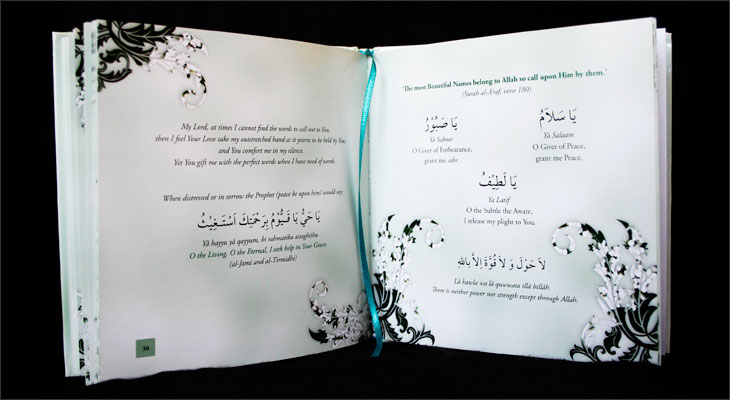 My Lord, at times I cannot find the words to call out to You,
then I feel Your Love take my outstretched hand as it yearns to be held by You,
and You comfort me in my silence.
Yet You gift me with the perfect words when I have need of words.
When distressed or in sorrow the Prophet (peace be upon him) would say:
يَا حَيُّ يَا قَيُّوْمُ بِرَحْمَتِكَ اَسْتَغِيْثُ
Yā hayyu yā qayyum, bi rahmatika astaghithu
O the Living, O the Eternal, I seek help in Your Grace.
(al-Jami and al-Tirmidhi)
36
"The most Beautiful Names belong to Allah so call upon Him by them."
(Surah al-A'raf, verse 180)
يَا صَبُوْرُ
Ya Saboor
O Giver of Forbearance,
grant me sabr.
يَا سَلاَمُ
Ya Salaam
O Giver of Peace,
grant me Peace.
يَا لَطِيْفُ
Ya Latif
O the Subtle the Aware,
I release my plight to You.
لاَ حَوْلَ وَ لاَ قُوَّةَ اِلاَّ بِاللهِ
Lā hawla wa lā quwwata illā billāh
There is neither power nor strength except through Allah.